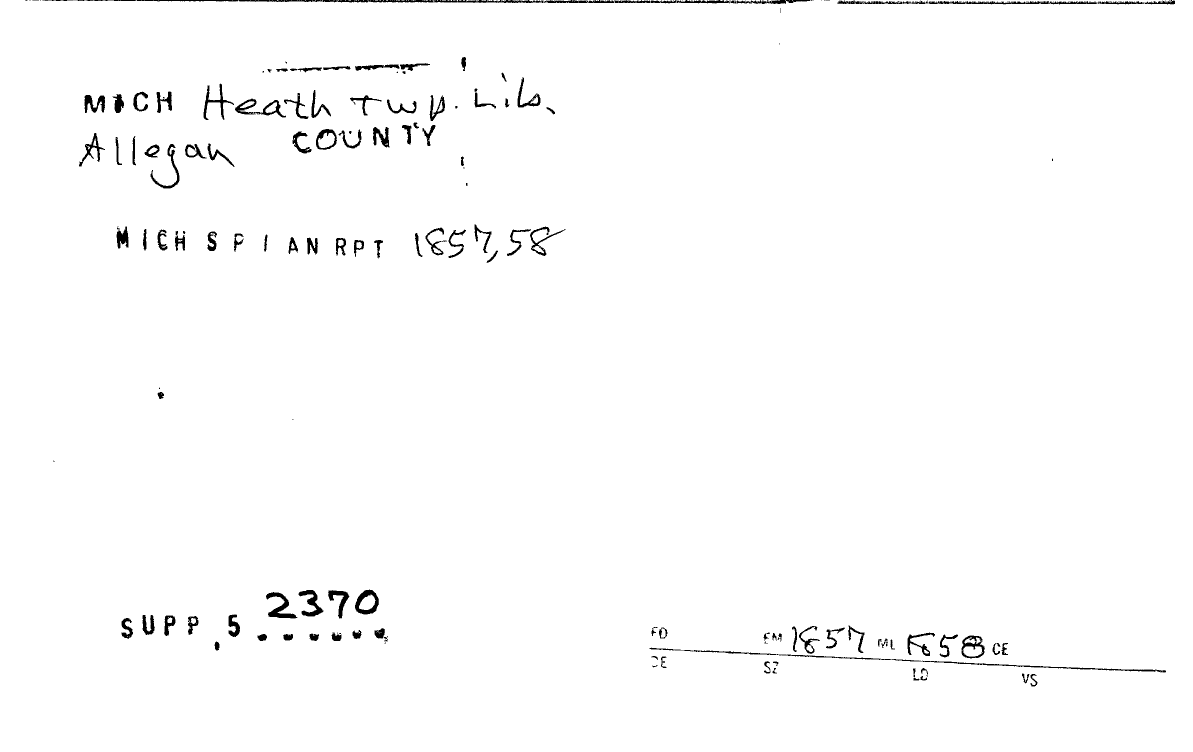 MICH Heath Twp. Lib.
Allegan COUNTY
MICH S P I AN RPT 1857,58
2370
SUPP.5 ......
FD EM 1857 ML 1858 CE
SZ LD VS